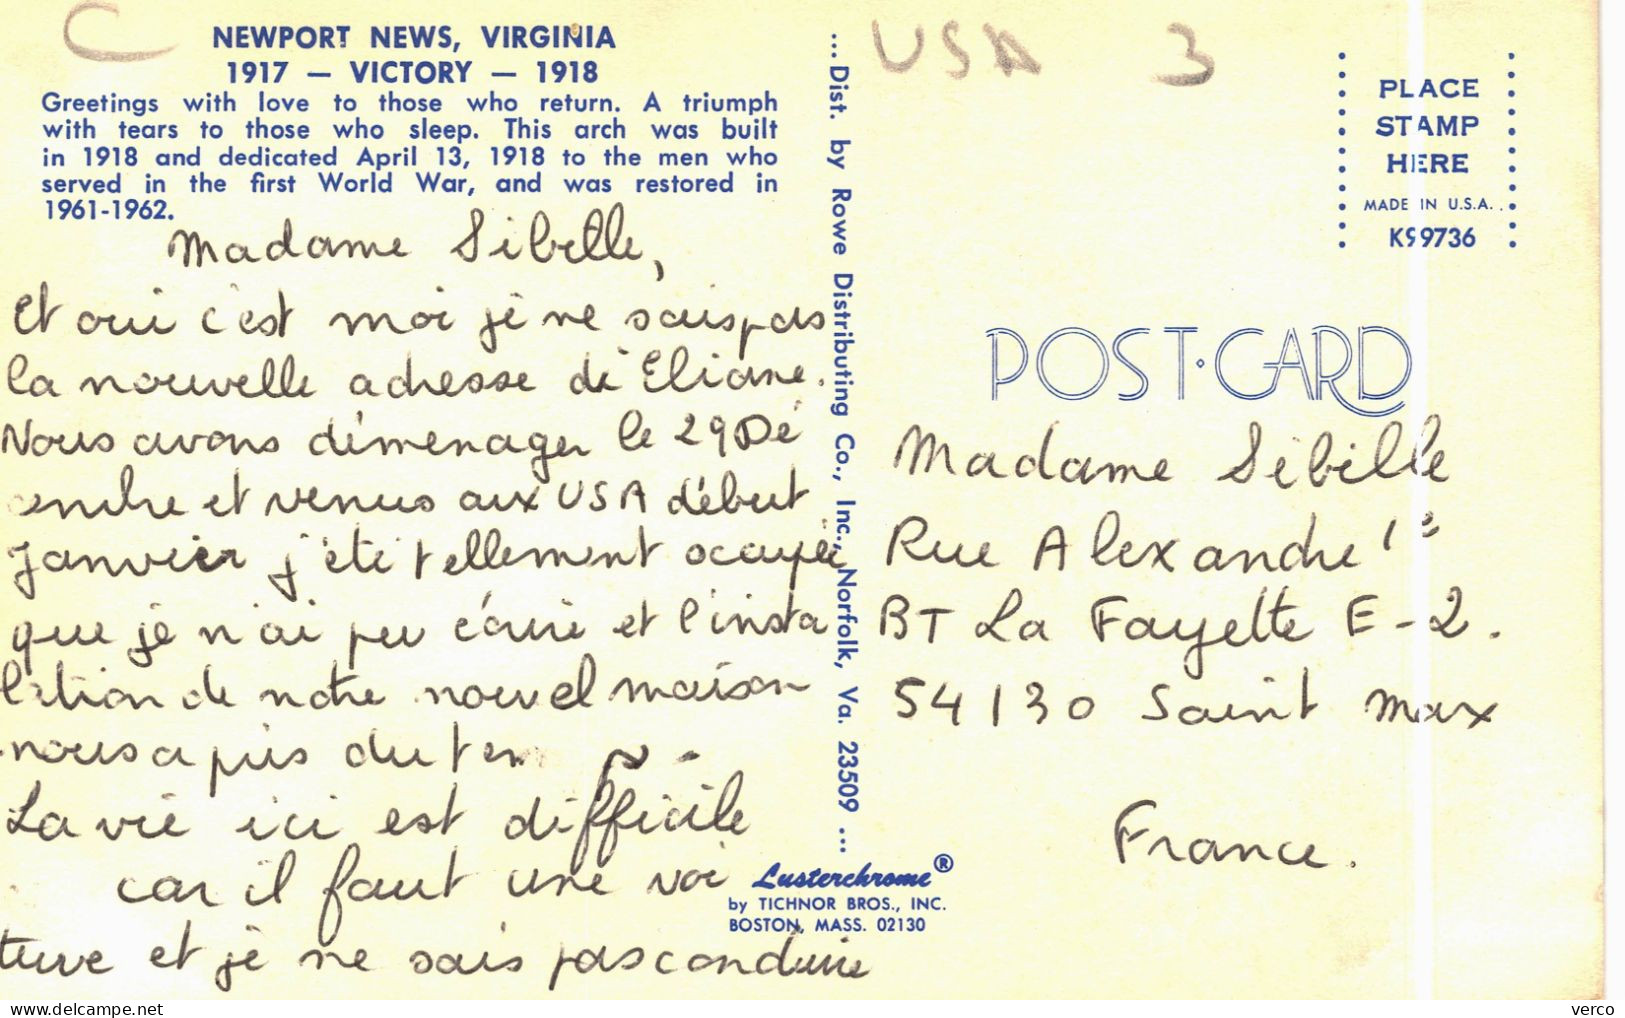 C
NEWPORT NEWS, VIRGINIA
1917 — VICTORY — 1918
Greetings with love to those who return. A triumph
with tears to those who sleep. This arch was built
in 1918 and dedicated April 13, 1918 to the men who
served in the first World War, and was restored in
1961-1962.
Madame Sibille,
Et oui c'est moi je ne sais pas
la nouvelle adresse de Eliane.
Nous avons déménager le 29 Dé
cembre et venus aux USA début
Janvier j'été tellement occupée
que je n'ai pu écrire et l'insta
lation de notre nouvel maison
nous a pris du tem
La vie ici est difficile
car il faut une voi
ture et je ne sais pas conduire
...Dist. by Rowe Distributing Co., Inc., Norfolk, Va. 23509...
Lusterchrome®
by TICHNOR BROS., INC.
BOSTON, MASS. 02130
USA 3
PLACE
STAMP
HERE
MADE IN U.S.A.
K99736
POST·CARD
Madame Sibille
Rue Alexandre 1e
BT La Fayette E-2.
54130 Saint Max
France.
verco